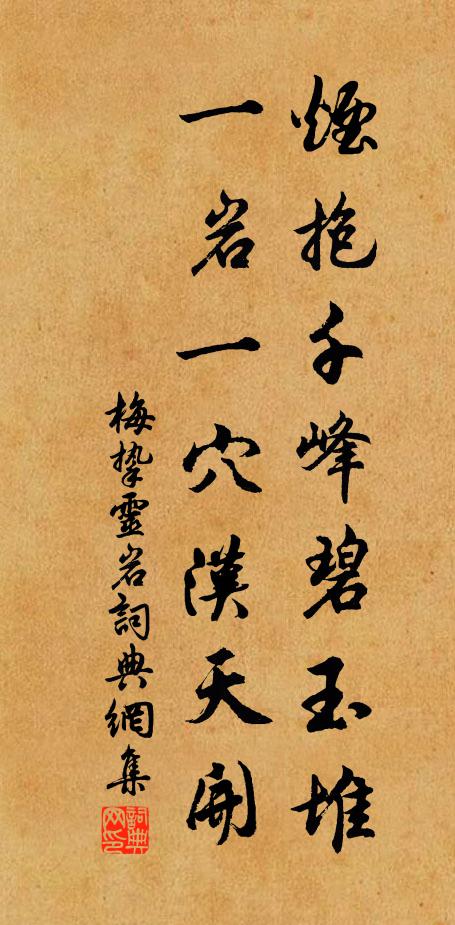 煙抱千峰碧玉堆
一岩一穴漢天開
梅摯靈岩詞典網集
詞典網印